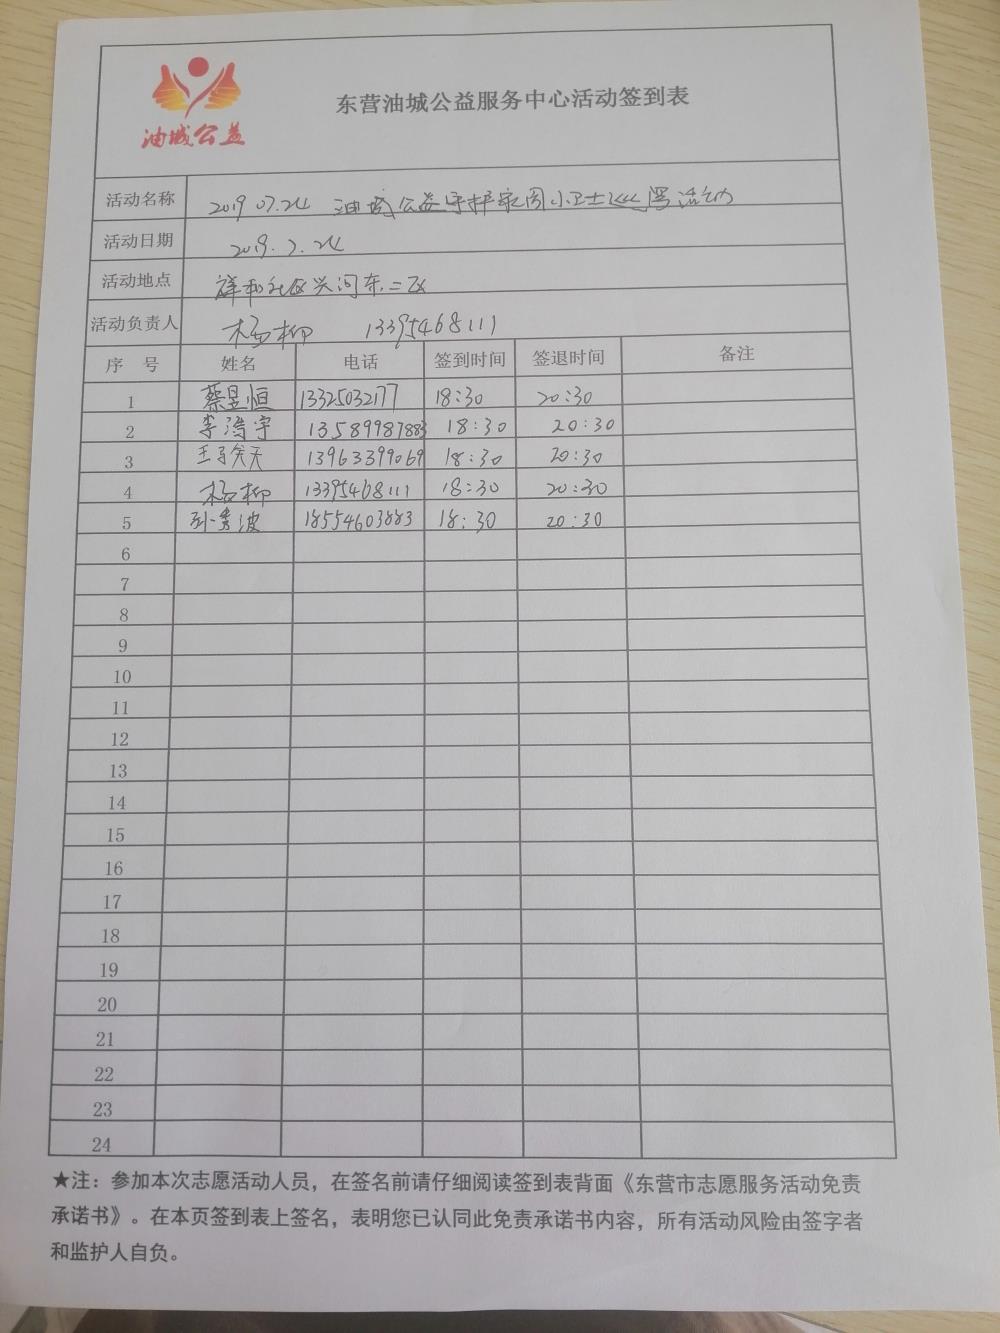 油城公益
东营油城公益服务中心活动签到表
活动名称 2019 07.24 油城公益守护家园小卫士巡逻活动
活动日期 2019.7.24
活动地点 祥和社区兴河东二区
活动负责人 杨柳 13395468111
序 号 姓名 电话 签到时间 签退时间 备注
1 蔡昱恒 13325032177 18:30 20:30
2 李浩宇 13589987883 18:30 20:30
3 13963399069 18:30 20:30
4 杨柳 13395468111 18:30 20:30
5 孙秀波 18554603883 18:30 20:30
6
7
8
9
10
11
12
13
14
15
16
17
18
19
20
21
22
23
24
★注：参加本次志愿活动人员，在签名前请仔细阅读签到表背面《东营市志愿服务活动免责
承诺书》。在本页签到表上签名，表明您已认同此免责承诺书内容，所有活动风险由签字者
和监护人自负。